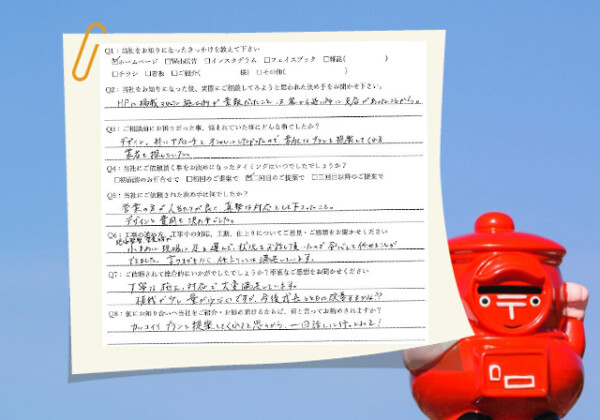 Q1：当社をお知りになったきっかけを教えて下さい
☑ホームページ □Web広告 □インスタグラム □フェイスブック □雑誌( )
□チラシ □看板 □ご紹介( 様) □その他( )
Q2：当社をお知りになった後、実際にご相談してみようと思われた決め手をお聞かせ下さい。
HPに掲載されていた施工例が豊富だったこと、
Q3：ご相談前にお困りだった事、悩まれていた事はどんな事でしたか？
デザイン、特にアプローチを
業者を探していた。
Q4：当社にご依頼頂く事をお決めになったタイミングはいつでしたでしょうか？
□初回の打合せで □初回のご提案で ☑二回目のご提案で □三回目以降のご提案で
Q5：当社にご依頼された決め手は何でしたか？
営業の方が人当たりが良く、真摯な対応をして下さったこと。
デザインと費用も決め手でした。
Q6：工事の流れや、工事中の対応、工期、仕上りについてご意見・ご感想をお聞かせください
小まめに現場に足を運んで、状況をお話し頂いたので安心して任せることが
できました。仕上りには満足しています。
Q7：ご依頼されて総合的にいかがでしたでしょうか？率直なご感想をお聞かせください
丁寧な施工、対応で大変満足しています。
植栽が少し量が少ないですが、今後成長とともに改善するかな!?
Q8：仮にお知り合いへ当社をご紹介・お勧め頂けるとすれば、何と言ってお勧めされますか？
カッコイイプランを提案してくれると思うから、一回話しに行ってみて！